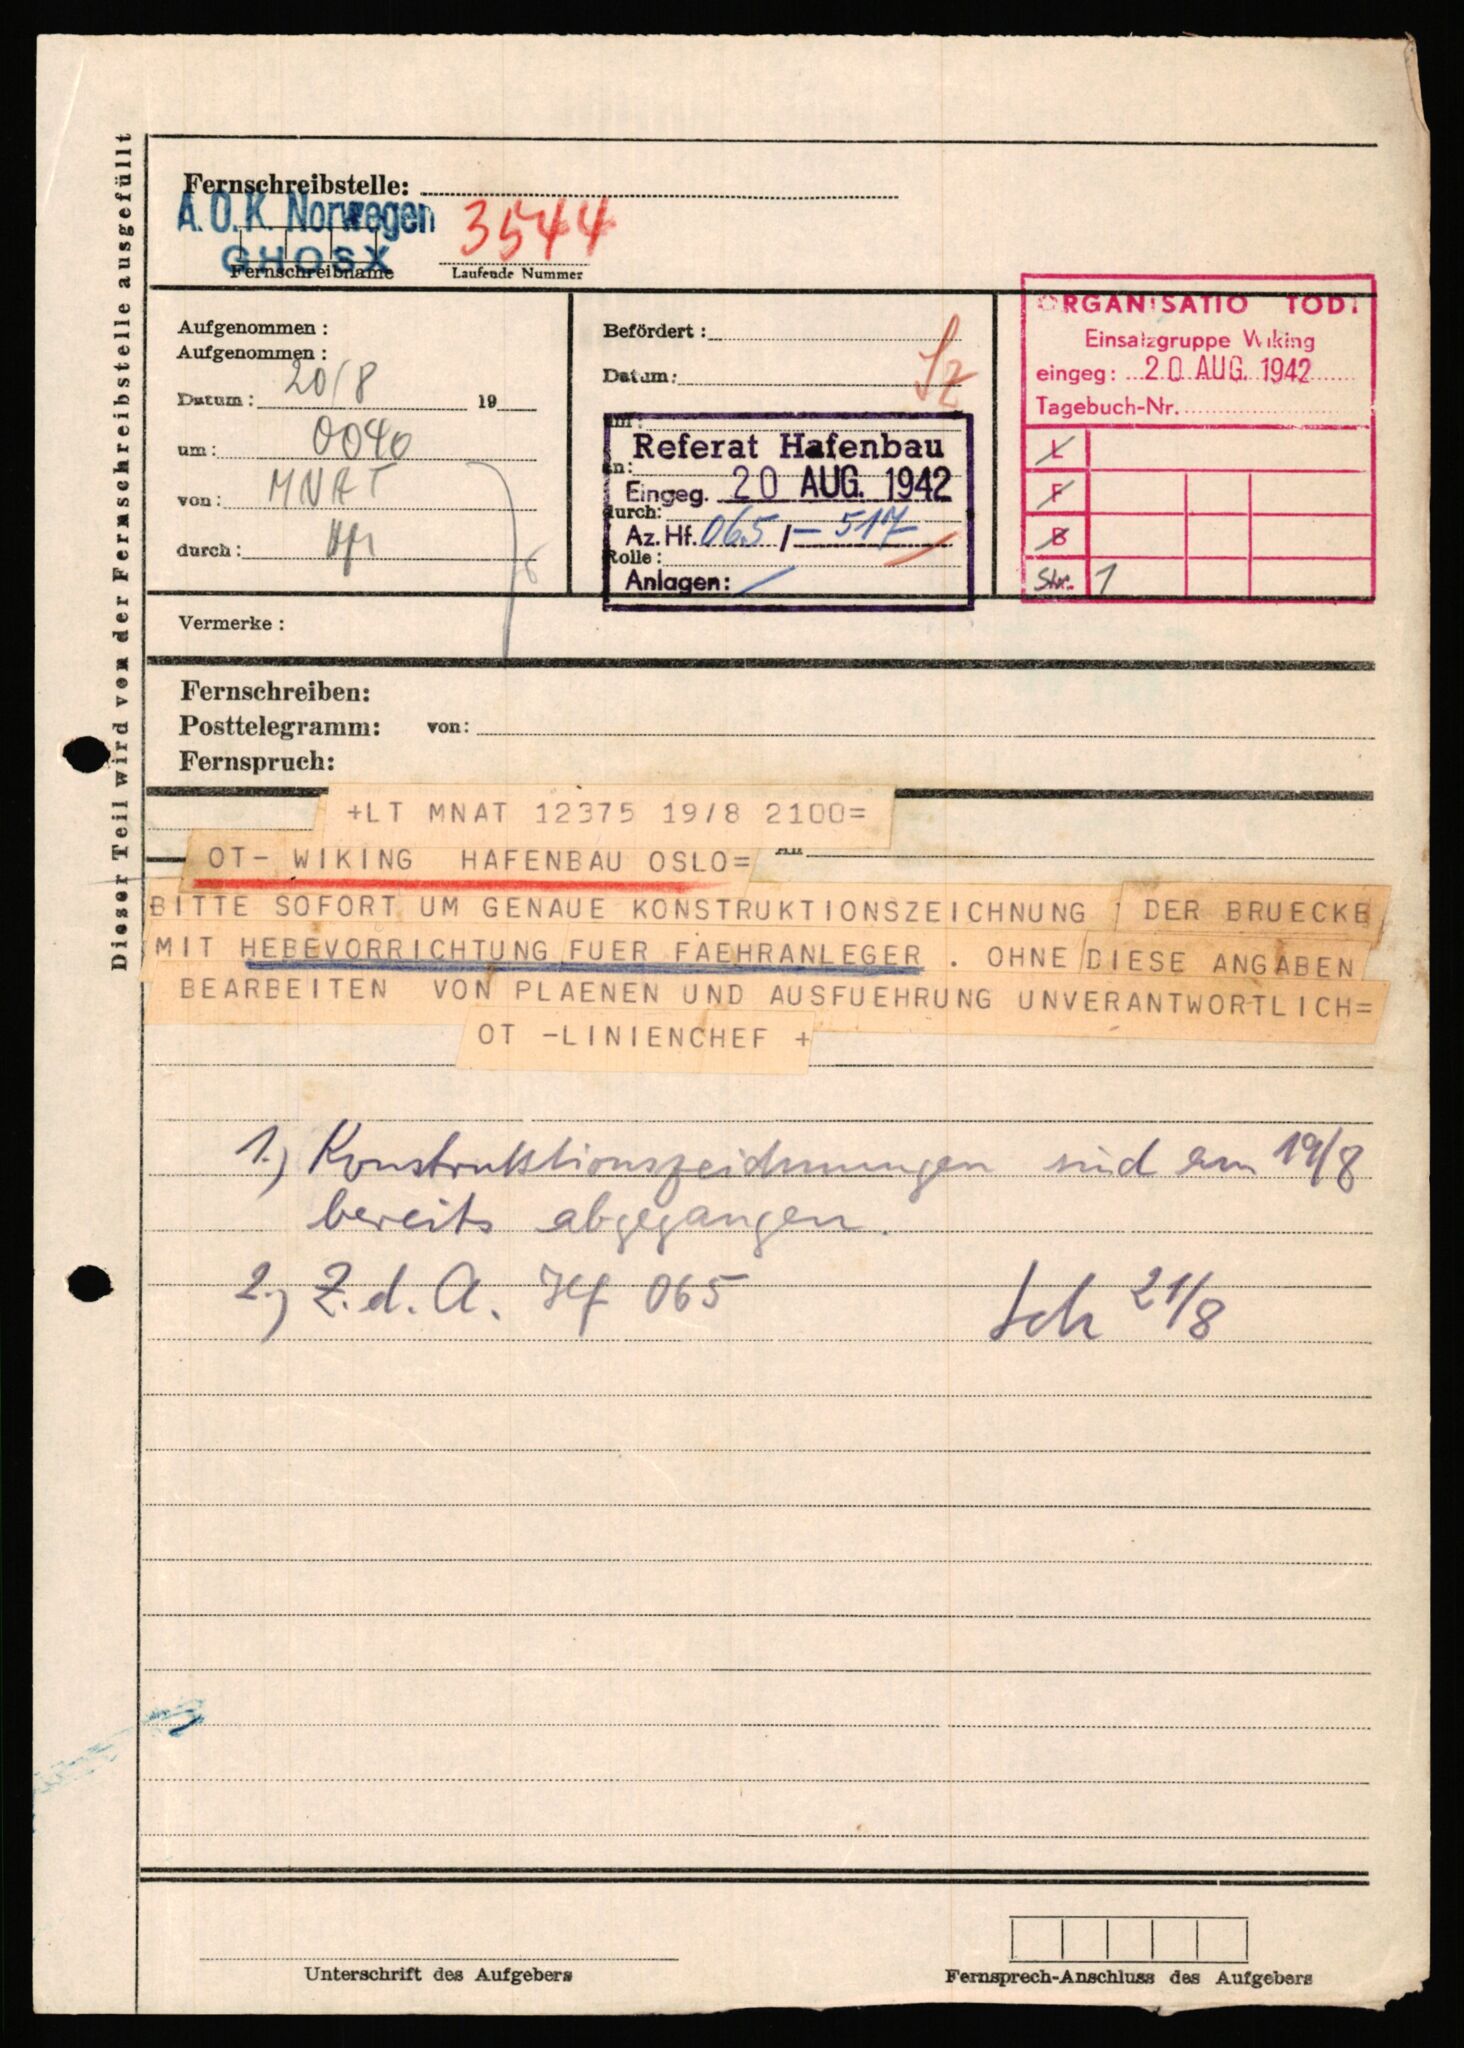 Dieser Teil wird von der Fernschreibstelle ausgefüllt
Fernschreibstelle:
A.O.K. Norwegen
GHOSX
Fernschreibname
3544
Laufende Nummer
Aufgenommen:
Aufgenommen:
Datum: 20/8 19
um: 0040
von: MNAT
durch:
Befördert:
Datum:
an:
durch:
Rolle:
Referat Hafenbau
Eingeg. 20 AUG. 1942
Az. Hf. 065 / - 517
Anlagen: /
ORGANISATIO TOD
Einsatzgruppe Wiking
eingeg: 20 AUG. 1942
Tagebuch-Nr.
L
F
B
Str. 1
Vermerke:
Fernschreiben:
Posttelegramm: von:
Fernspruch:
+LT MNAT 12375 19/8 2100=
OT- WIKING HAFENBAU OSLO=
An
BITTE SOFORT UM GENAUE KONSTRUKTIONSZEICHNUNG DER BRUECKE
MIT HEBEVORRICHTUNG FUER FAEHRANLEGER . OHNE DIESE ANGABEN
BEARBEITEN VON PLAENEN UND AUSFUEHRUNG UNVERANTWORTLICH=
OT -LINIENCHEF +
1.) Konstruktionszeichnungen sind am 19/8
bereits abgegangen.
2.) Z. d. A. Hf 065 Sch 21/8
Unterschrift des Aufgebers
Fernsprech-Anschluss des Aufgebers